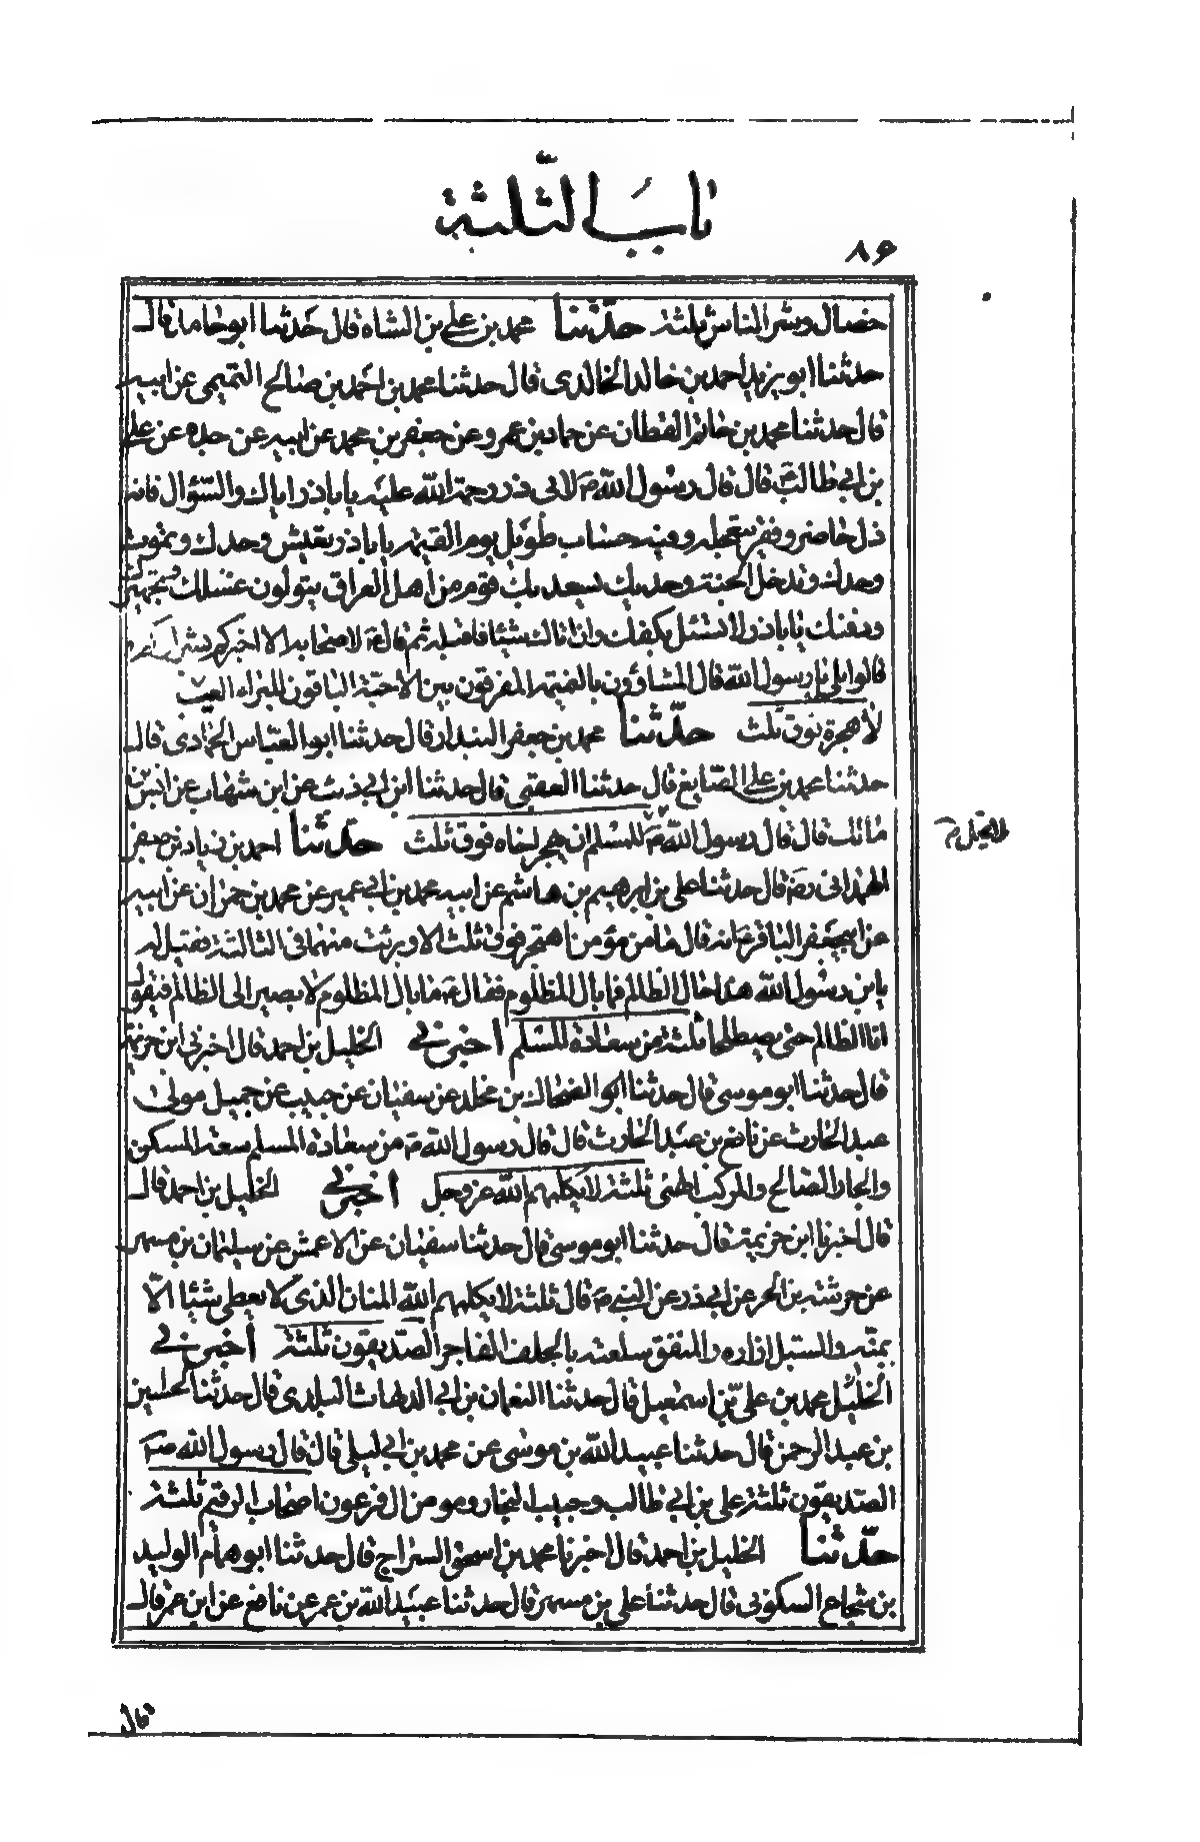 باب الثلثة
٨۶
خصال وبشر الناس بثلثة حدّثنا محمد بن علي بن الشاه قال حدثنا ابو حامد قال
حدثنا ابو يزيد احمد بن خالد الخالدى قال حدثنا محمد بن احمد بن صالح التميمى عن ابيه
قال حدثنا محمد بن حاتم القطان عن حماد بن عمرو عن جعفر بن محمد عن ابيه عن جده عن على
بن ابي طالب ع قال قال رسول الله ص لابى ذر رحمة الله عليه يا باذر اياك والسؤال فانه
ذل حاضر وفقر تتعجله وفيه حساب طويل يوم القيمة يا باذر تعيش وحدك وتموت
وحدك وتدخل الجنة وحدك يسعد بك قوم من اهل العراق يتولون غسلك وتجهيزك
ودفنك يا باذر لا تسئل بكفك وان اتاك شيئا فاقبله ثم قال ع لاصحابه الا اخبركم بشراركم
قالوا بلى يا رسول الله قال المشاؤون بالنميمة المفرقون بين الاحبة الباقون للبراء العيب
لا هجرة فوق ثلث حدّثنا محمد بن جعفر البندار قال حدثنا ابو العباس الحمادى قال
حدثنا محمد بن علي الصايغ قال حدثنا القعنبى قال حدثنا ابن ابي ذئب عن ابن شهاب عن انس بن
مالك قال قال رسول الله ص للمسلم ان يهجر اخاه فوق ثلث حدّثنا احمد بن زياد بن جعفر
لا يحل م
الهمدانى رض قال حدثنا على بن ابرهيم بن هاشم عن ابيه محمد بن ابي عمير عن محمد بن حمران عن ابيه
عن ابيجعفر الباقر ع انه قال ما من مؤمن اهتجر فوق ثلث الا وبرئت منهما فى الثالثة فقيل له
يا بن رسول الله هذا حال الظالم فما بال المظلوم فقال ع ما بال المظلوم لا يصير الى الظالم فيقول
انا الظالم حتى يصطلحا ثلثة من سعادة المسلم اخبرنى الخليل بن احمد قال اخبرنى ابن خزيمة
قال حدثنا ابو موسى قال حدثنا ابو الضحاك بن مخلد عن سفيان عن حبيب عن جميل مولى
عبد الحارث عن نافع بن عبد الحارث قال قال رسول الله ص من سعادة المسلم سعة المسكن
والجار الصالح والمركب الهنى ثلثة لا يكلمهم الله عز وجل اخبرنى الخليل بن احمد قال
قال اخبرنا ابن خزيمة قال حدثنا ابو موسى قال حدثنا سفيان عن الاعمش عن سليمان بن مسهر
عن خرشة بن الحر عن ابي ذر عن النبي ص قال ثلثة لا يكلمهم الله المنان الذى لا يعطى شيئا الّا
بمنّه والمسبل ازاره والمنفق سلعته بالحلف الفاجر الصدّيقون ثلثة اخبرنى
الخليل محمد بن على بن اسمعيل قال حدثنا النعمان بن ابي الدلهاث البلدى قال حدثنا الحسين
بن عبد الرحمن قال حدثنا عبيد الله بن موسى عن محمد بن ابي ليلى قال قال رسول الله ص
الصديقون ثلثة على بن ابي طالب وحبيب النجار ومومن ال فرعون اصحاب الرقيم ثلثة
حدّثنا الخليل بن احمد قال اخبرنا محمد بن اسحق السراج قال حدثنا ابو همام الوليد
بن شجاع السكونى قال حدثنا على بن مسهر قال حدثنا عبيد الله بن عمر عن نافع عن ابن عمر قال
قال